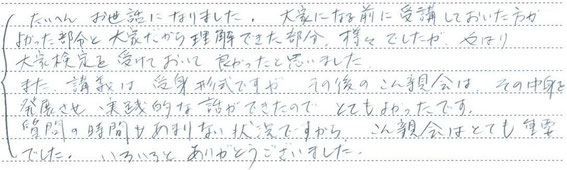 たいへん お世話になりました。大家になる前に受講しておいた方が
よかった部分と大家だから理解できた部分、様々でしたが やはり
大家検定を受けておいて 良かったと思いました
また、講義は 受身形式ですが その後のこん親会は、その中身を
発展させ 実践的な話ができたので とてもよかったです。
質問の時間もあまりない状況ですから、こん親会はとても 重要
でした。いろいろと ありがとうございました。